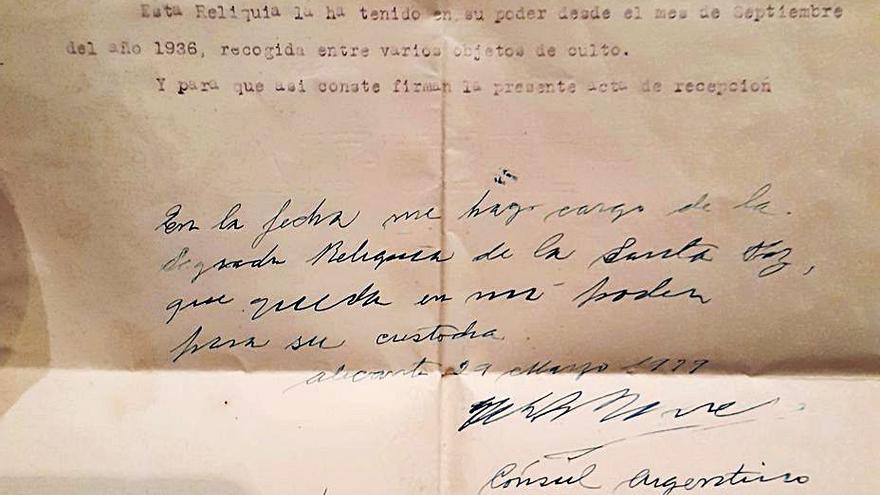 Esta Reliquia la ha tenido en su poder desde el mes de Septiembre
del año 1936, recogida entre varios objetos de culto.
Y para que asi conste firman la presente acta de recepción
En la fecha me hago cargo de la
Sagrada Reliquia de la Santa Faz,
que queda en mi poder
para su custodia
Alicante 29 Marzo
Cónsul Argentino